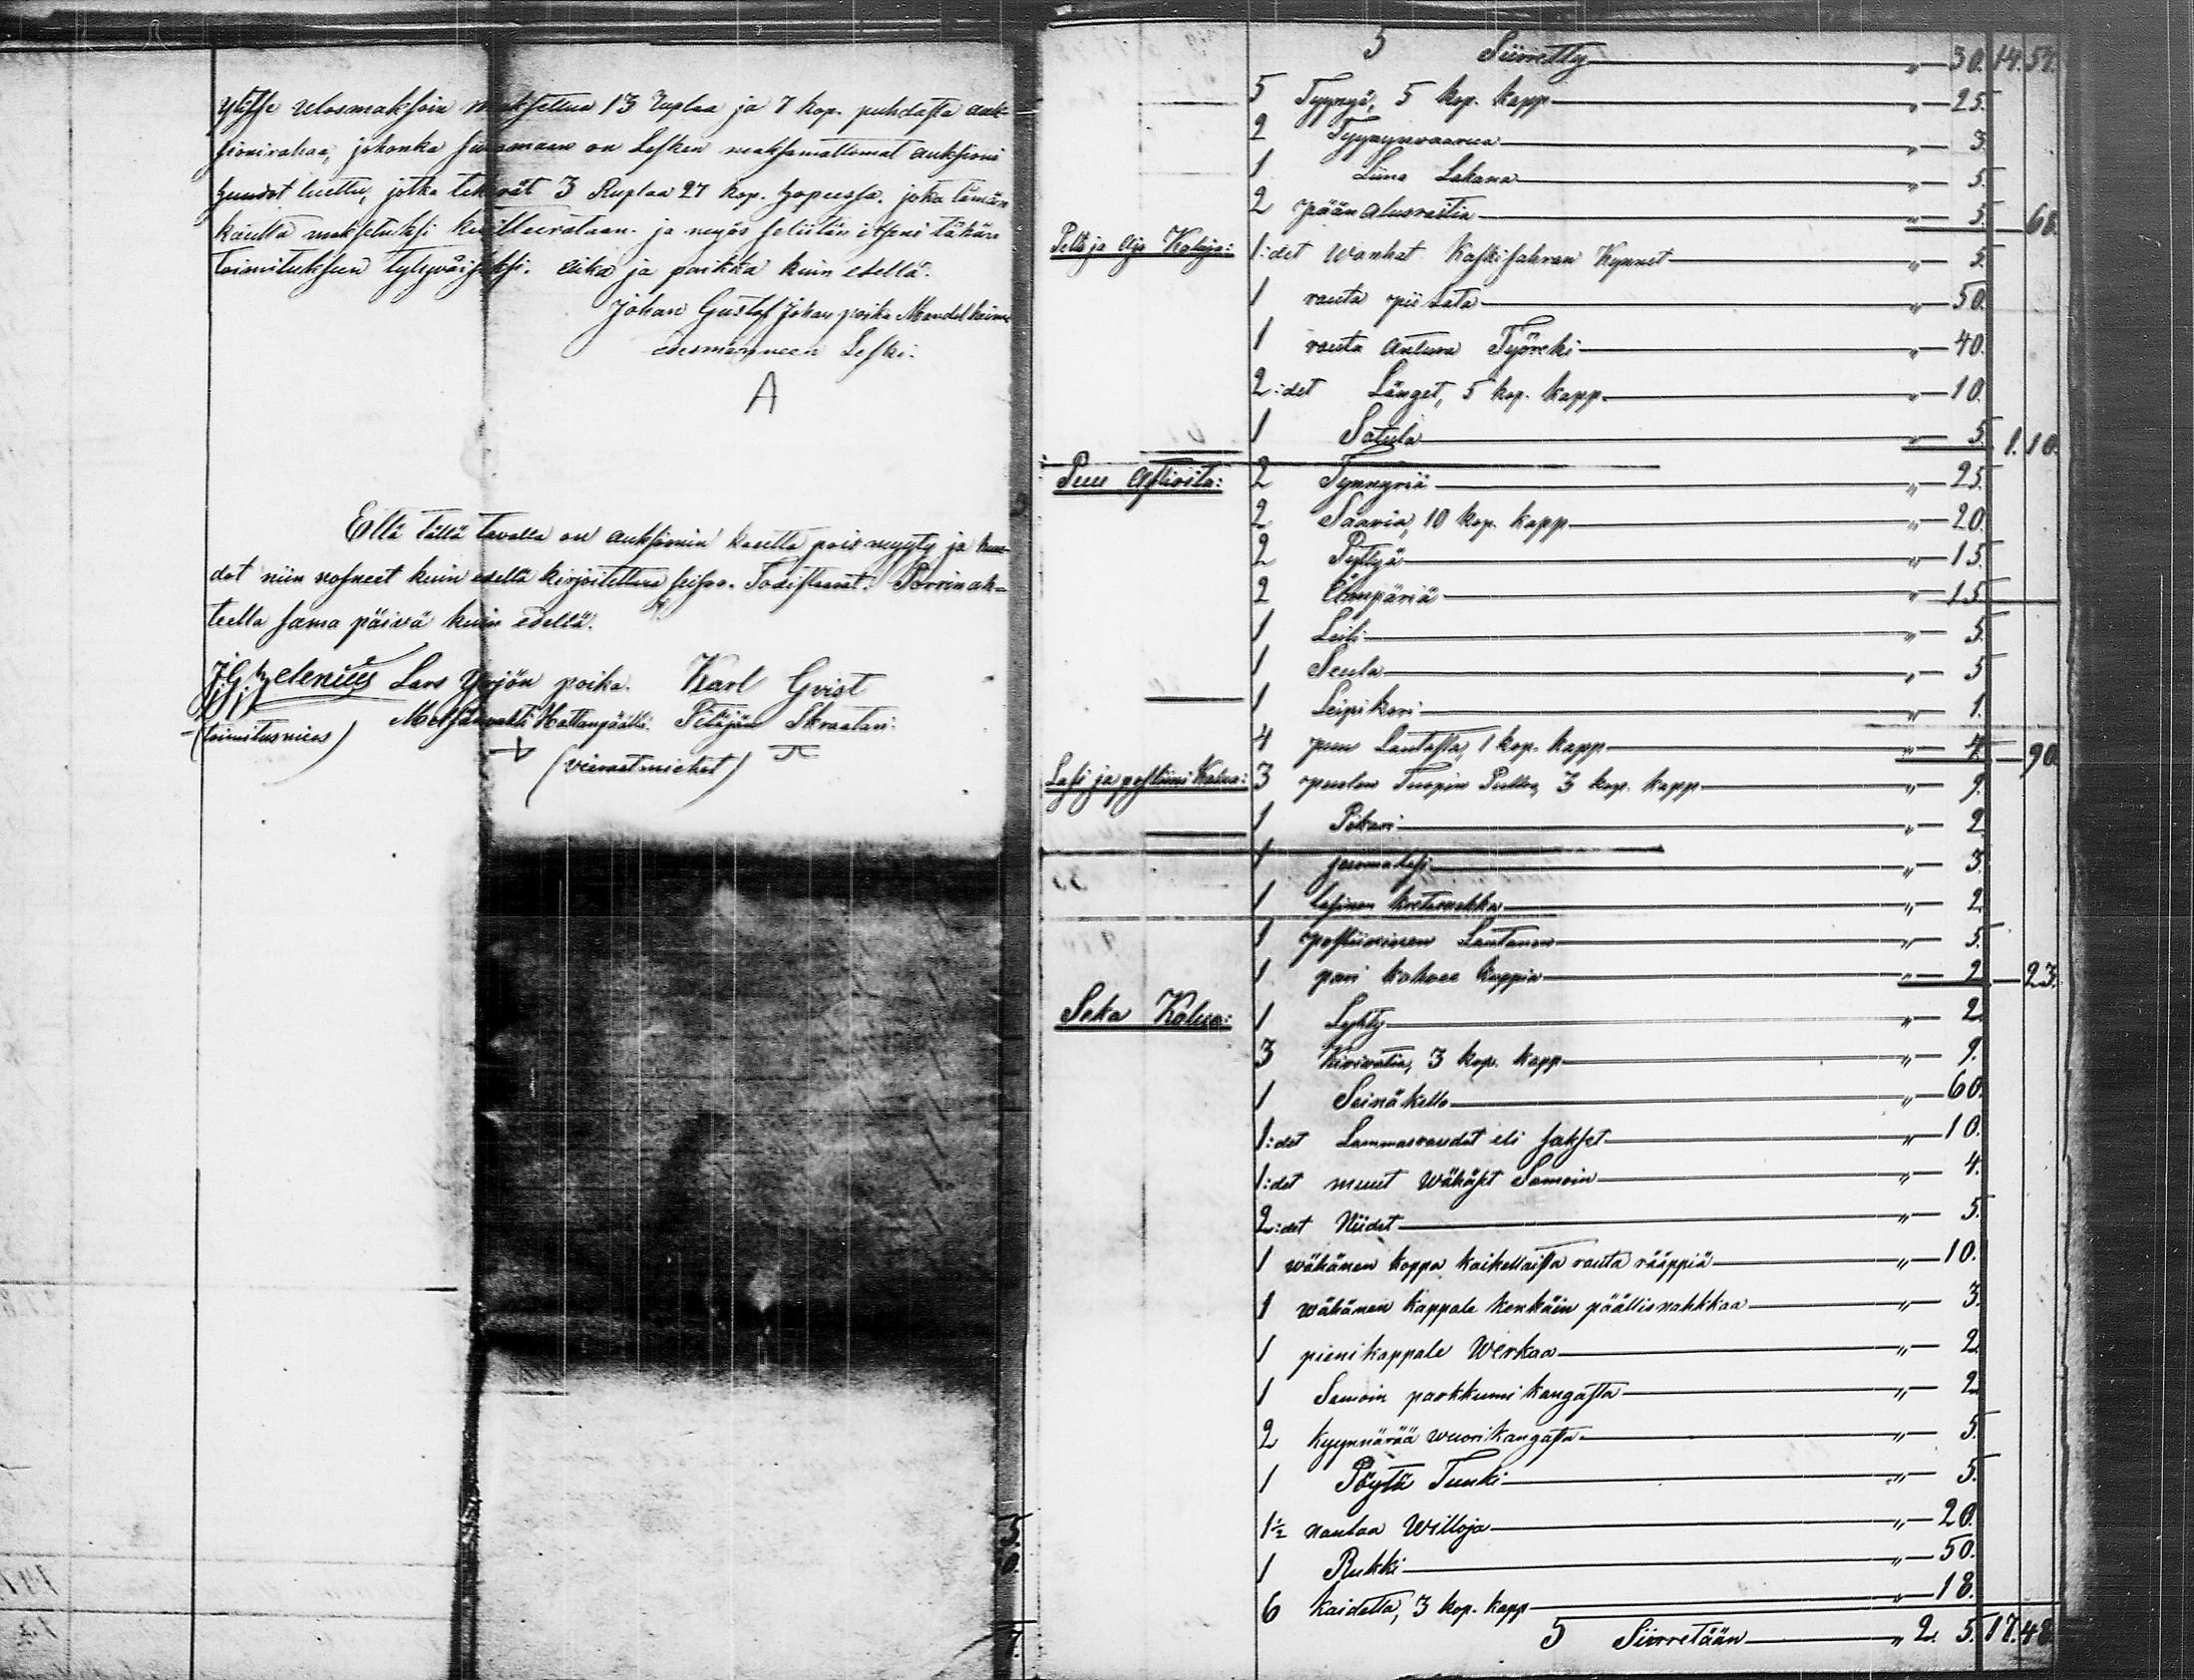 ylitse ulosmaksoin maksettua 13 Ruplaa ja 7 kop. puhdasta auk-
sionirahaa, johonka summaan on Lesken maksamattomat auksioni
huudot luettu, jotka tekevät 3 Ruplaa 27 kop. hopeassa. joka tämän
kautta maksetuksi kvitteerataan. ja myös seliitän itseni tähän
toimitukseen tytyväiseksi. aika ja paikka kuin edellä.
Johan Gustaf Johan poika Mandel
edesmänneen Leski.
A
Että tällä tavalla on auksionin kautta pois myyty ja huu-
dot niin nosneet kuin edellä kirjoitettuna seisoo. Todistaavat.
teella sama päivä kuin edellä.
Lars Yrjön poika. Karl Gvist
(toimitusmies) Metsänvahti Hattanpäältä. Pitäjän Skraatari.
(vieraatmiehet)
5 Siirretty „ 30. 14. 57.
5 Tyynyä, 5 kop. kapp „ 25.
2 Tyynynvaarua „ 3.
1 Liina Lakana „ 5.
2 pään alusraitia „ 5. 68.
Pelto ja Ajo Kaluja: 1:det Wanhat Kaskisahran Kynnet „ 5.
1 rauta pii Lata „ 50.
1 rauta antura Työreki „ 40.
2:det Länget, 5 kop. kapp. „ 10.
1 Satula „ 5. 1. 10.
Puu Astioita: 2 Tynnyriä „ 25.
2 Saavia, 10 kop. kapp „ 20.
2 Pyttyä „ 15.
2 Ämpäriä „ 15.
1 Leili „ 5.
1 Seula „ 5
1 Leipikori „ 1.
4 puu Lautasta, 1 kop. kapp „ 4. 90.
Lasi ja postiini Kalua: 3 puolen Tuopin Pulloa, 3 kop. kapp „ 9.
1 Pikari „ 2
1 juomalasi „ 3.
1 lasinen „ 2.
1 postiininen Lautanen „ 5.
1 pari kahvee kuppia „ 2 23.
Seka Kalua: 1 Lyhty „ 2.
3 Kivivatia, 3 kop. kapp „ 9.
1 Seinäkello „ 60.
1:det Lammasraudat eli sakset „ 10.
1:det muut Wähäset Samoin „ 4.
2:det Niidet „ 5.
1 wähänen koppa kaikellaista rauta rääppiä „ 10.
1 wähänen kappale kenkäin päällisnahkkaa „ 3.
1 pieni kappale Werkaa „ 2.
1 Samoin parkkumi kangasta „ 2.
2 kyynnärää wuorikangasta „ 5.
1 Pöytä Tuuki „ 5.
1½ naulaa Willoja „ 20.
1 Rukki „ 50.
6 kaidetta, 3 kop. kapp „ 18.
5 Siirretään „ 2. 5. 17. 48.